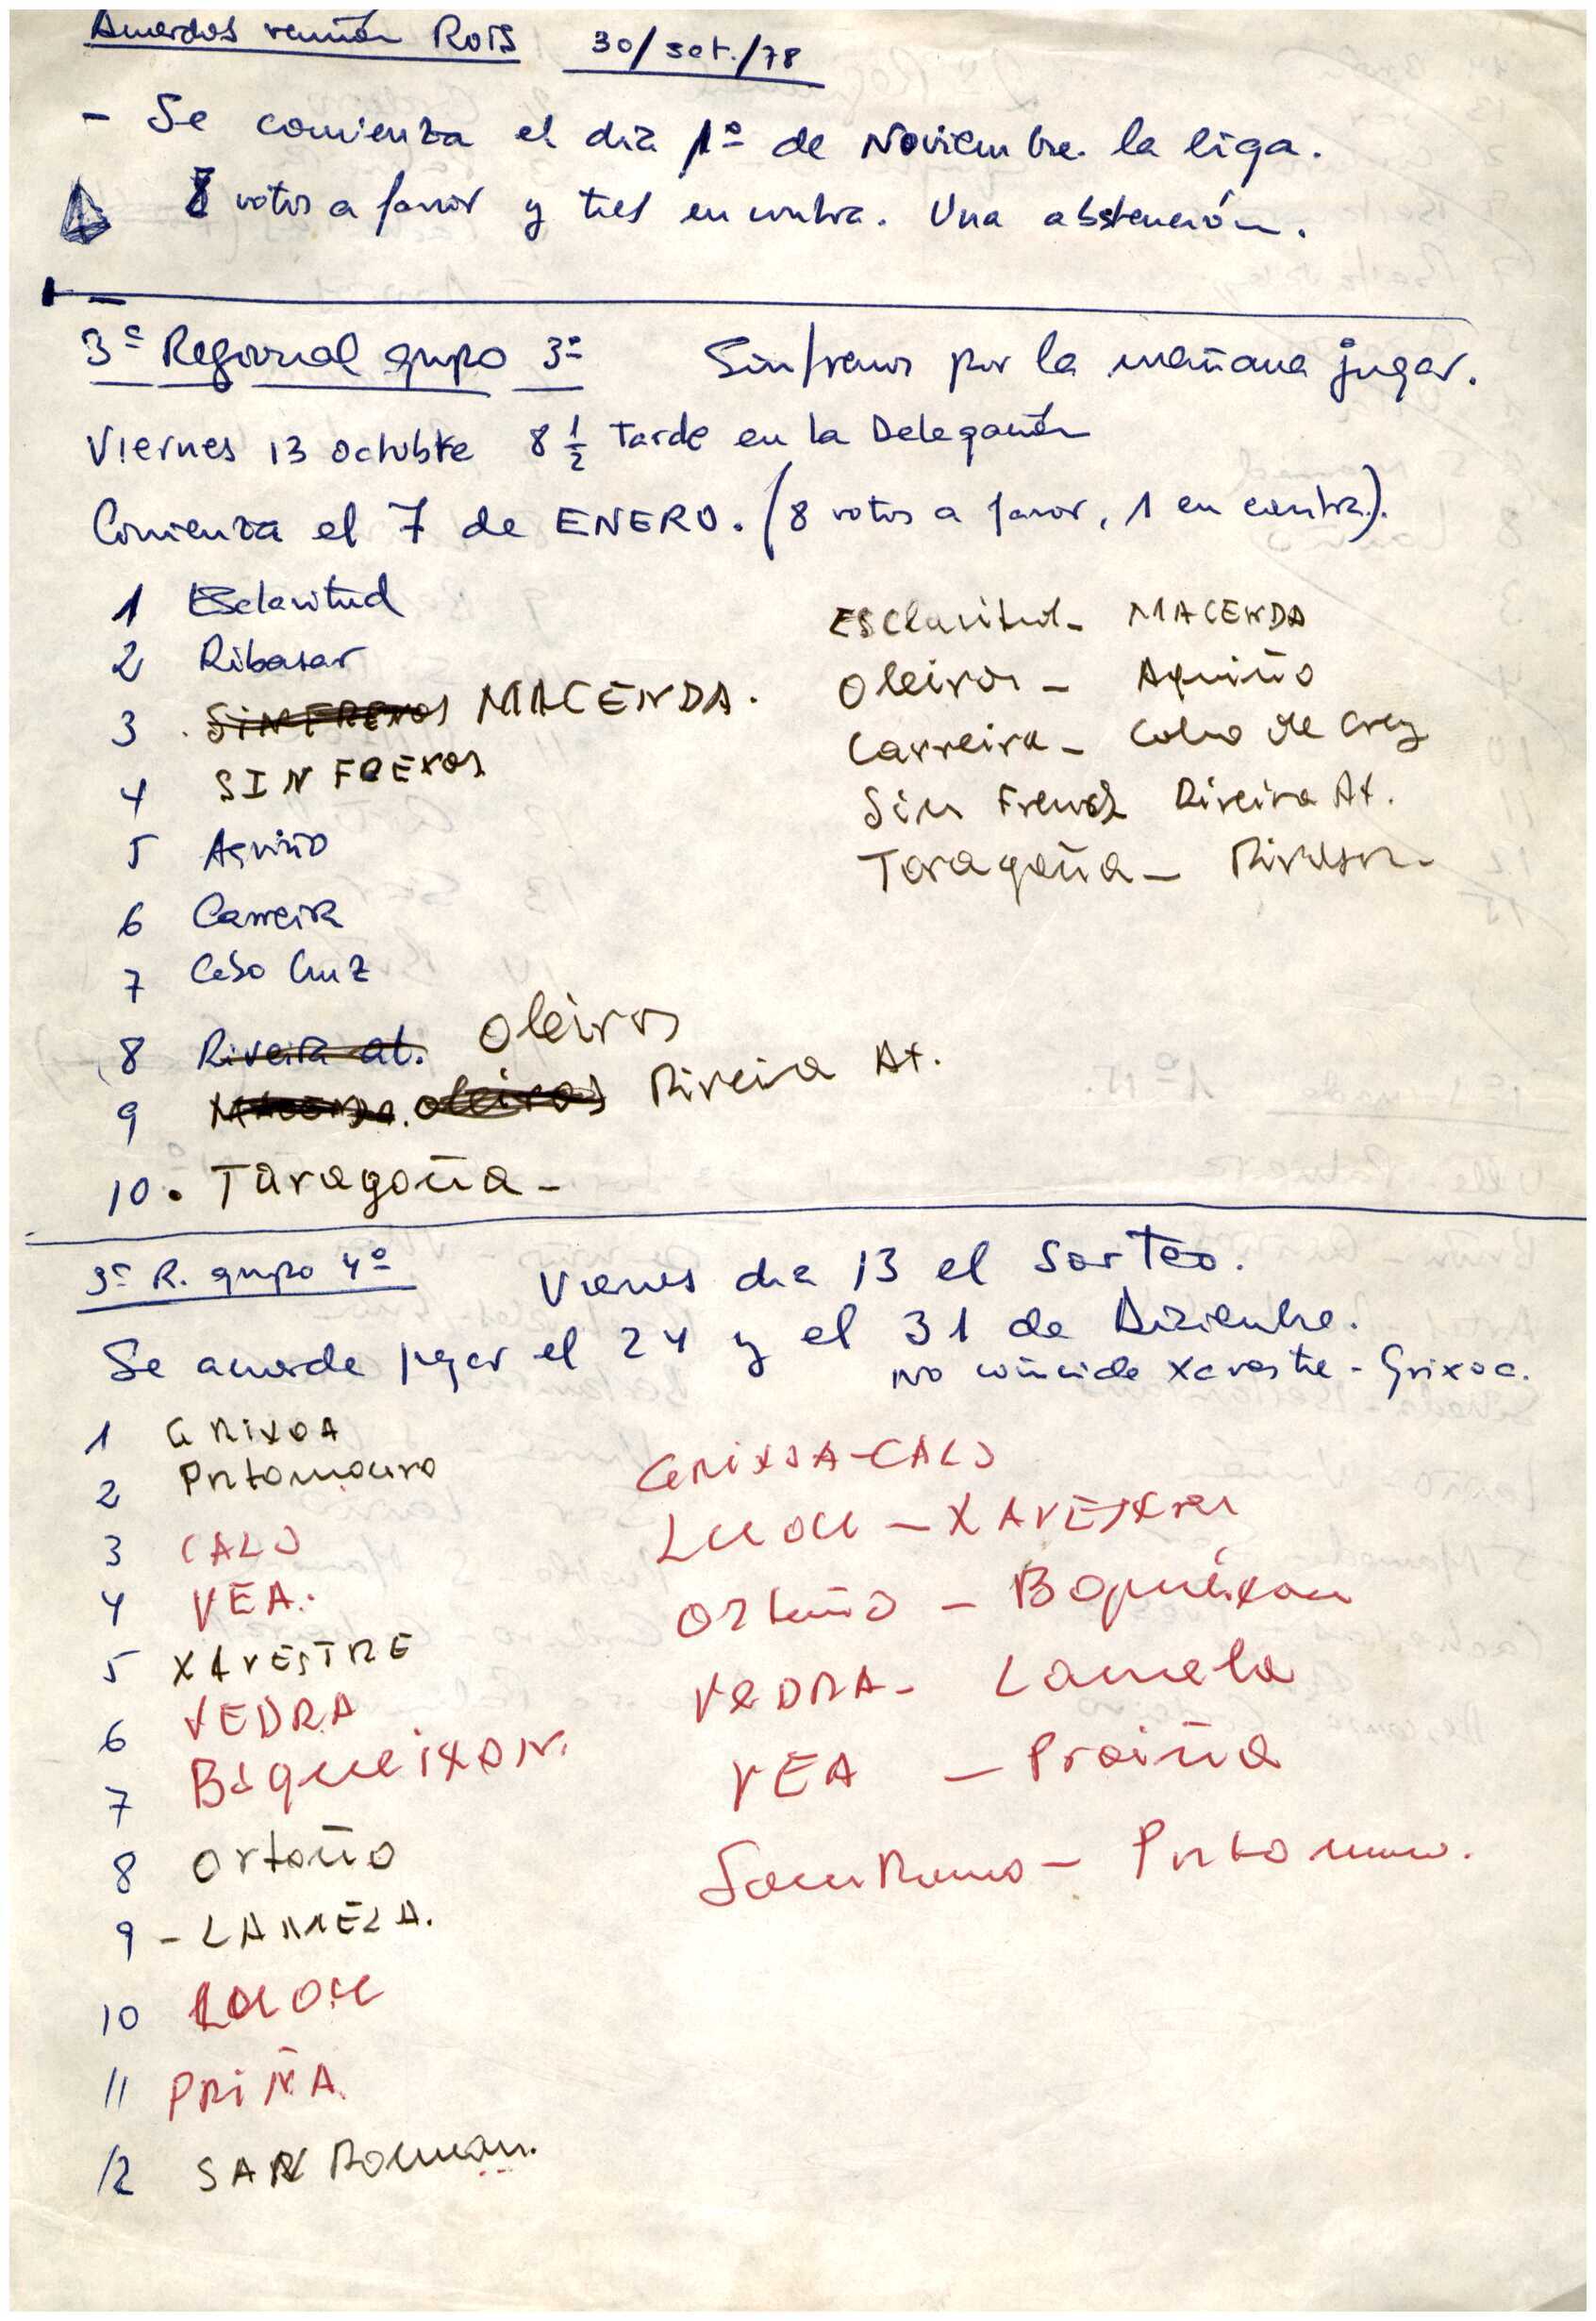 Acuerdos reunión Rois 30/set./78
- Se comienza el día 1º de Noviembre la liga.
8 votos a favor y tres en contra. Una abstención.
3ª Regional grupo 3º Sinfrenos por la mañana jugar.
Viernes 13 octubre 8 ½ tarde en la Delegación
Comienza el 7 de ENERO. (8 votos a favor, 1 en contra).
1 Esclavitud
2 Ribasar
3 SINFRENOS MACENDA.
4 SIN FRENOS
5 Aguiño
6 Carreira
7 Cabo Cruz
8 Riveira at. Oleiros
9 Macenda. oleiros Riveira At.
10. Taragoña -
Esclavitud - MACENDA
Oleiros - Aguiño
Carreira - Cabo de Cruz
Sin Frenos Riveira At.
Taragoña - Rivasar
3ª R. grupo 4º Viernes día 13 el Sorteo.
Se acorde jugar el 24 y el 31 de Diziembre.
no coincide Xavestre - Grixoa.
1 GRIXOA
2 Portomouro
3 CALO
4 VEA.
5 XAVESTRE
6 VEDRA
7 BoqueiXON.
8 Ortoño
9 - LAMELA.
10 LUOU
11 PRIÑA
12 SAN Roman.
GRIXOA - CALO
LUOU - XAVESTRE
Ortoño - Boqueixon
VEDRA - Lamela
VEA - Proiña
San Roman - Portomouro.